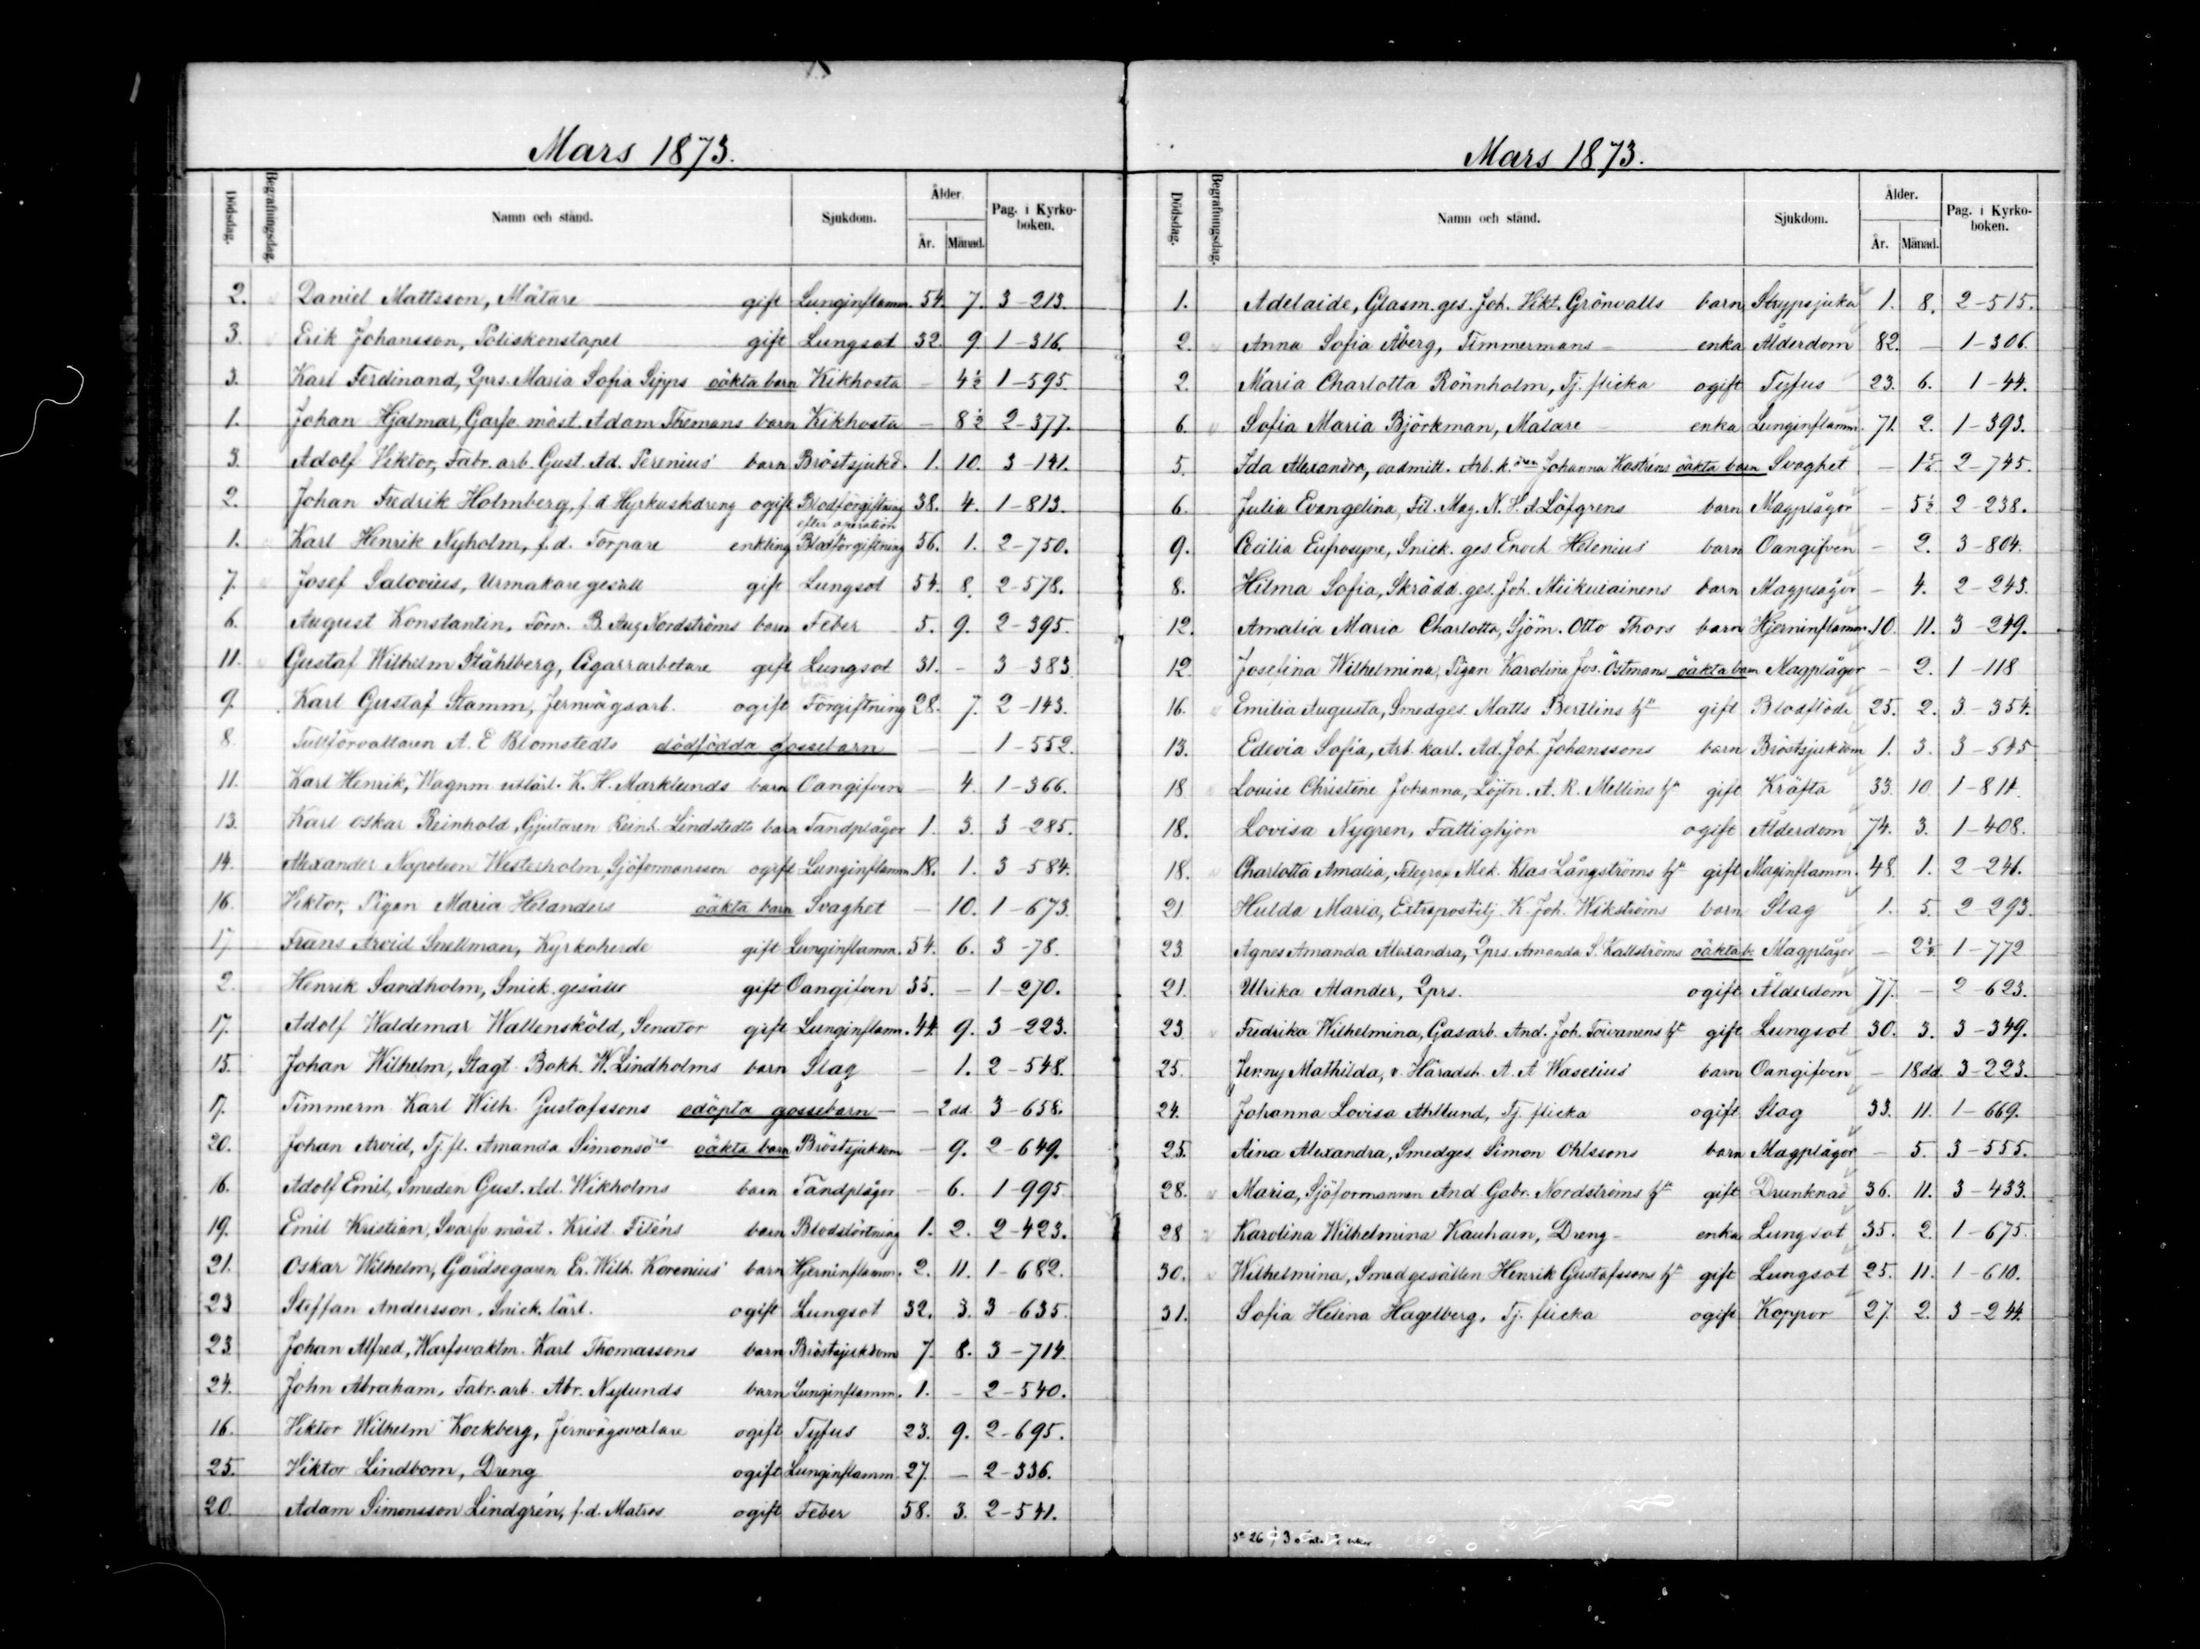 Mars 1873.
Dödsdag. Begrafningsdag. Namn och stånd. Sjukdom. Ålder. År. Månad. Pag. i Kyrkoboken.
2. Daniel Mattsson, Mätare gift Lunginflamm. 54. 7. 3-213.
3. Erik Johansson, Poliskonstapel gift Lungsot 32. 9. 1-316.
3. Karl Ferdinand, Qprs. Maria Sofia oäkta barn Kikhosta - 4½ 1-595.
1. Johan Hjalmar, Garfv. mäst. Adam Themans barn Kikhosta - 8½ 2-377.
3. Adolf Viktor, Fabr. arb. Gust. Ad. Perenius' barn Bröstsjukd. 1. 10. 3-141.
2. Johan Fredrik Holmberg, f.d. Hyrkuskdreng ogift Blodförgiftning efter operation 38. 4. 1-813.
1. Karl Henrik Nyholm, f.d. Torpare enkling Blodförgiftning 56. 1. 2-750.
7. Josef Salovius, Urmakaregesäll gift Lungsot 54. 8. 2-578.
6. August Konstantin, B. Aug Nordströms barn Feber 5. 9. 2-395.
11. Gustaf Wilhelm Ståhlberg, Cigarrarbetare gift Lungsot 31. - 3-383
9. Karl Gustaf Stamm, Jernvägsarb. ogift Förgiftning 28. 7. 2-143.
8. Tullförvaltaren A. E Blomstedts dödfödda gossebarn - - 1-552.
11. Karl Henrik, Wagnm utlärl. K. H. Marklunds barn Oangifven - 4. 1-366.
13. Karl Oskar Reinhold, Gjutaren Reinh. Lindstedts barn Tandplågor 1. 3. 3-285.
14. Alexander Napoleon Westerholm, Sjöformansson ogift Lunginflamm. 18. 1. 3-584.
16. Viktor, Pigan Maria Helanders oäkta barn Svaghet - 10. 1-673.
17. Frans Arvid Snellman, Kyrkoherde gift Lunginflamm. 54. 6. 3-78.
2. Henrik Sandholm, Snick. gesäll gift Oangifven 35. - 1-270.
17. Adolf Waldemar Wallensköld, Senator gift Lunginflam. 44. 9. 3-223.
15. Johan Wilhelm, Slagt. Bokh. W. Lindholms barn Slag - 1. 2-548.
17. Timmerm Karl Wilh. Gustafssons odöpta gossebarn - - 2 dd 3-658.
20. Johan Arvid, Tj. fl. Amanda oäkta barn Bröstsjukdom - 9. 2-649.
16. Adolf Emil, Smeden Gust. Ad. Wikholms barn Tandplågor - 6. 1-995.
19. Emil Kristian, Svarfv. mäst. Krist. Filéns barn Blodstörtning 1. 2. 2-423.
21. Oskar Wilhelm, Gårdsegaren Er. Wilh. Korenius' barn Hjerninflamm. 2. 11. 1-682.
23 Steffan Andersson, Snick. lärl. ogift Lungsot 32. 3. 3-635.
23 Johan Alfred, Warfsvaktm. Karl Thomassons barn Bröstsjukdom 7. 8. 3-714.
24. John Abraham, Fabr. arb. Abr. Nylunds barn Lunginflamm. 1. - 2-540.
16. Viktor Wilhelm Kockberg, Jernvägsvexlare ogift Tyfus 23. 9. 2-695.
25. Viktor Lindbom, Dreng ogift Lunginflamm. 27. - 2-336.
20. Adam Simonsson Lindgrén, f.d. Matros ogift Feber 58. 3. 2-541.
Mars 1873.
Dödsdag. Begrafningsdag. Namn och stånd. Sjukdom. Ålder. År. Månad. Pag. i Kyrkoboken.
1. Adelaide, Glasm. ges. Joh. Vikt. Grönvalls barn Strypsjuka 1. 8. 2-515.
2. Anna Sofia Åberg, Timmermans - enka Ålderdom 82. - 1-306.
2. Maria Charlotta Rönnholm, Tj. flicka ogift Tyfus 23. 6. 1-44.
6. Sofia Maria Björkman, Målare - enka Lunginflamm. 71. 2. 1-393.
5. Ida Alexandra, oadmitt. Arb. k. Johanna Kastréns oäkta barn Svaghet - 2-745.
6. Julia Evangelina, Fil. Mag. N. H. A Löfgrens barn Magplågor - 5½ 2-238.
9. Cecilia Eufrosyne, Snick. ges. Enoch Helenius' barn Oangifven - 2. 3-804.
8. Hilma Sofia, Skrädd. ges. Joh. Miikulainens barn Magplågor - 4. 2-243.
12. Amalia Maria Charlotta, Sjöm. Otto Thors barn Hjerninflamm. 10. 11. 3-249.
12. Josefina Wilhelmina, Pigan Karolina Jos. Östmans oäkta barn Magplågor - 2. 1-118
16. Emilia Augusta, Smedges. Matts Bertlins h:u gift Blodflöde 25. 2. 3-354.
13. Edevia Sofia, Arb. karl. Ad. Joh. Johanssons barn Bröstsjukdom 1. 3. 3-545
18. Lovise Christine Johanna, Löjtn. A. R. Mellins h:u gift Kräfta 33. 10. 1-811.
18. Lovisa Nygren, Fattighjon ogift Ålderdom 74. 3. 1-408.
18. Charlotta Amalia, Telegraf Mek. Klas Långströms h:u gift Maginflamm. 48. 1. 2-241.
21. Hulda Maria, Extrapostilj. K. Joh. Wikströms barn Slag 1. 5. 2-293.
23 Agnes Amanda Alexandra, Qprs. Amanda S. Kallströms oäkta b. Magplågor - 1-772
21. Ulrika Alander, Qprs. ogift Ålderdom 77. - 2-623.
23 Fredrika Wilhelmina, Gasarb. And. Joh. Toivanens h:u gift Lungsot 30. 3. 3-349.
25. Jenny Mathilda, v. Häradsh. A. A Waselius' barn Oangifven - 18 dd. 3-223.
24. Johanna Lovisa Ahllund, Tj. flicka ogift Slag 33. 11. 1-669.
25. Aina Alexandra, Smedges. Simon Ohlssons barn Magplågor - 5. 3-555.
28. Maria, Sjöformannen And. Gabr. Nordströms h:u gift Drunknad 36. 11. 3-433.
28 Karolina Wilhelmina Kauhain, Dreng - enka Lungsot 35. 2. 1-675.
30. Wilhelmina, Smedgesällen Henrik Gustafssons h:u gift Lungsot 25. 11. 1-610.
31. Sofia Helena Hagelberg, Tj. flicka ogift Koppor 27. 2. 3-244.